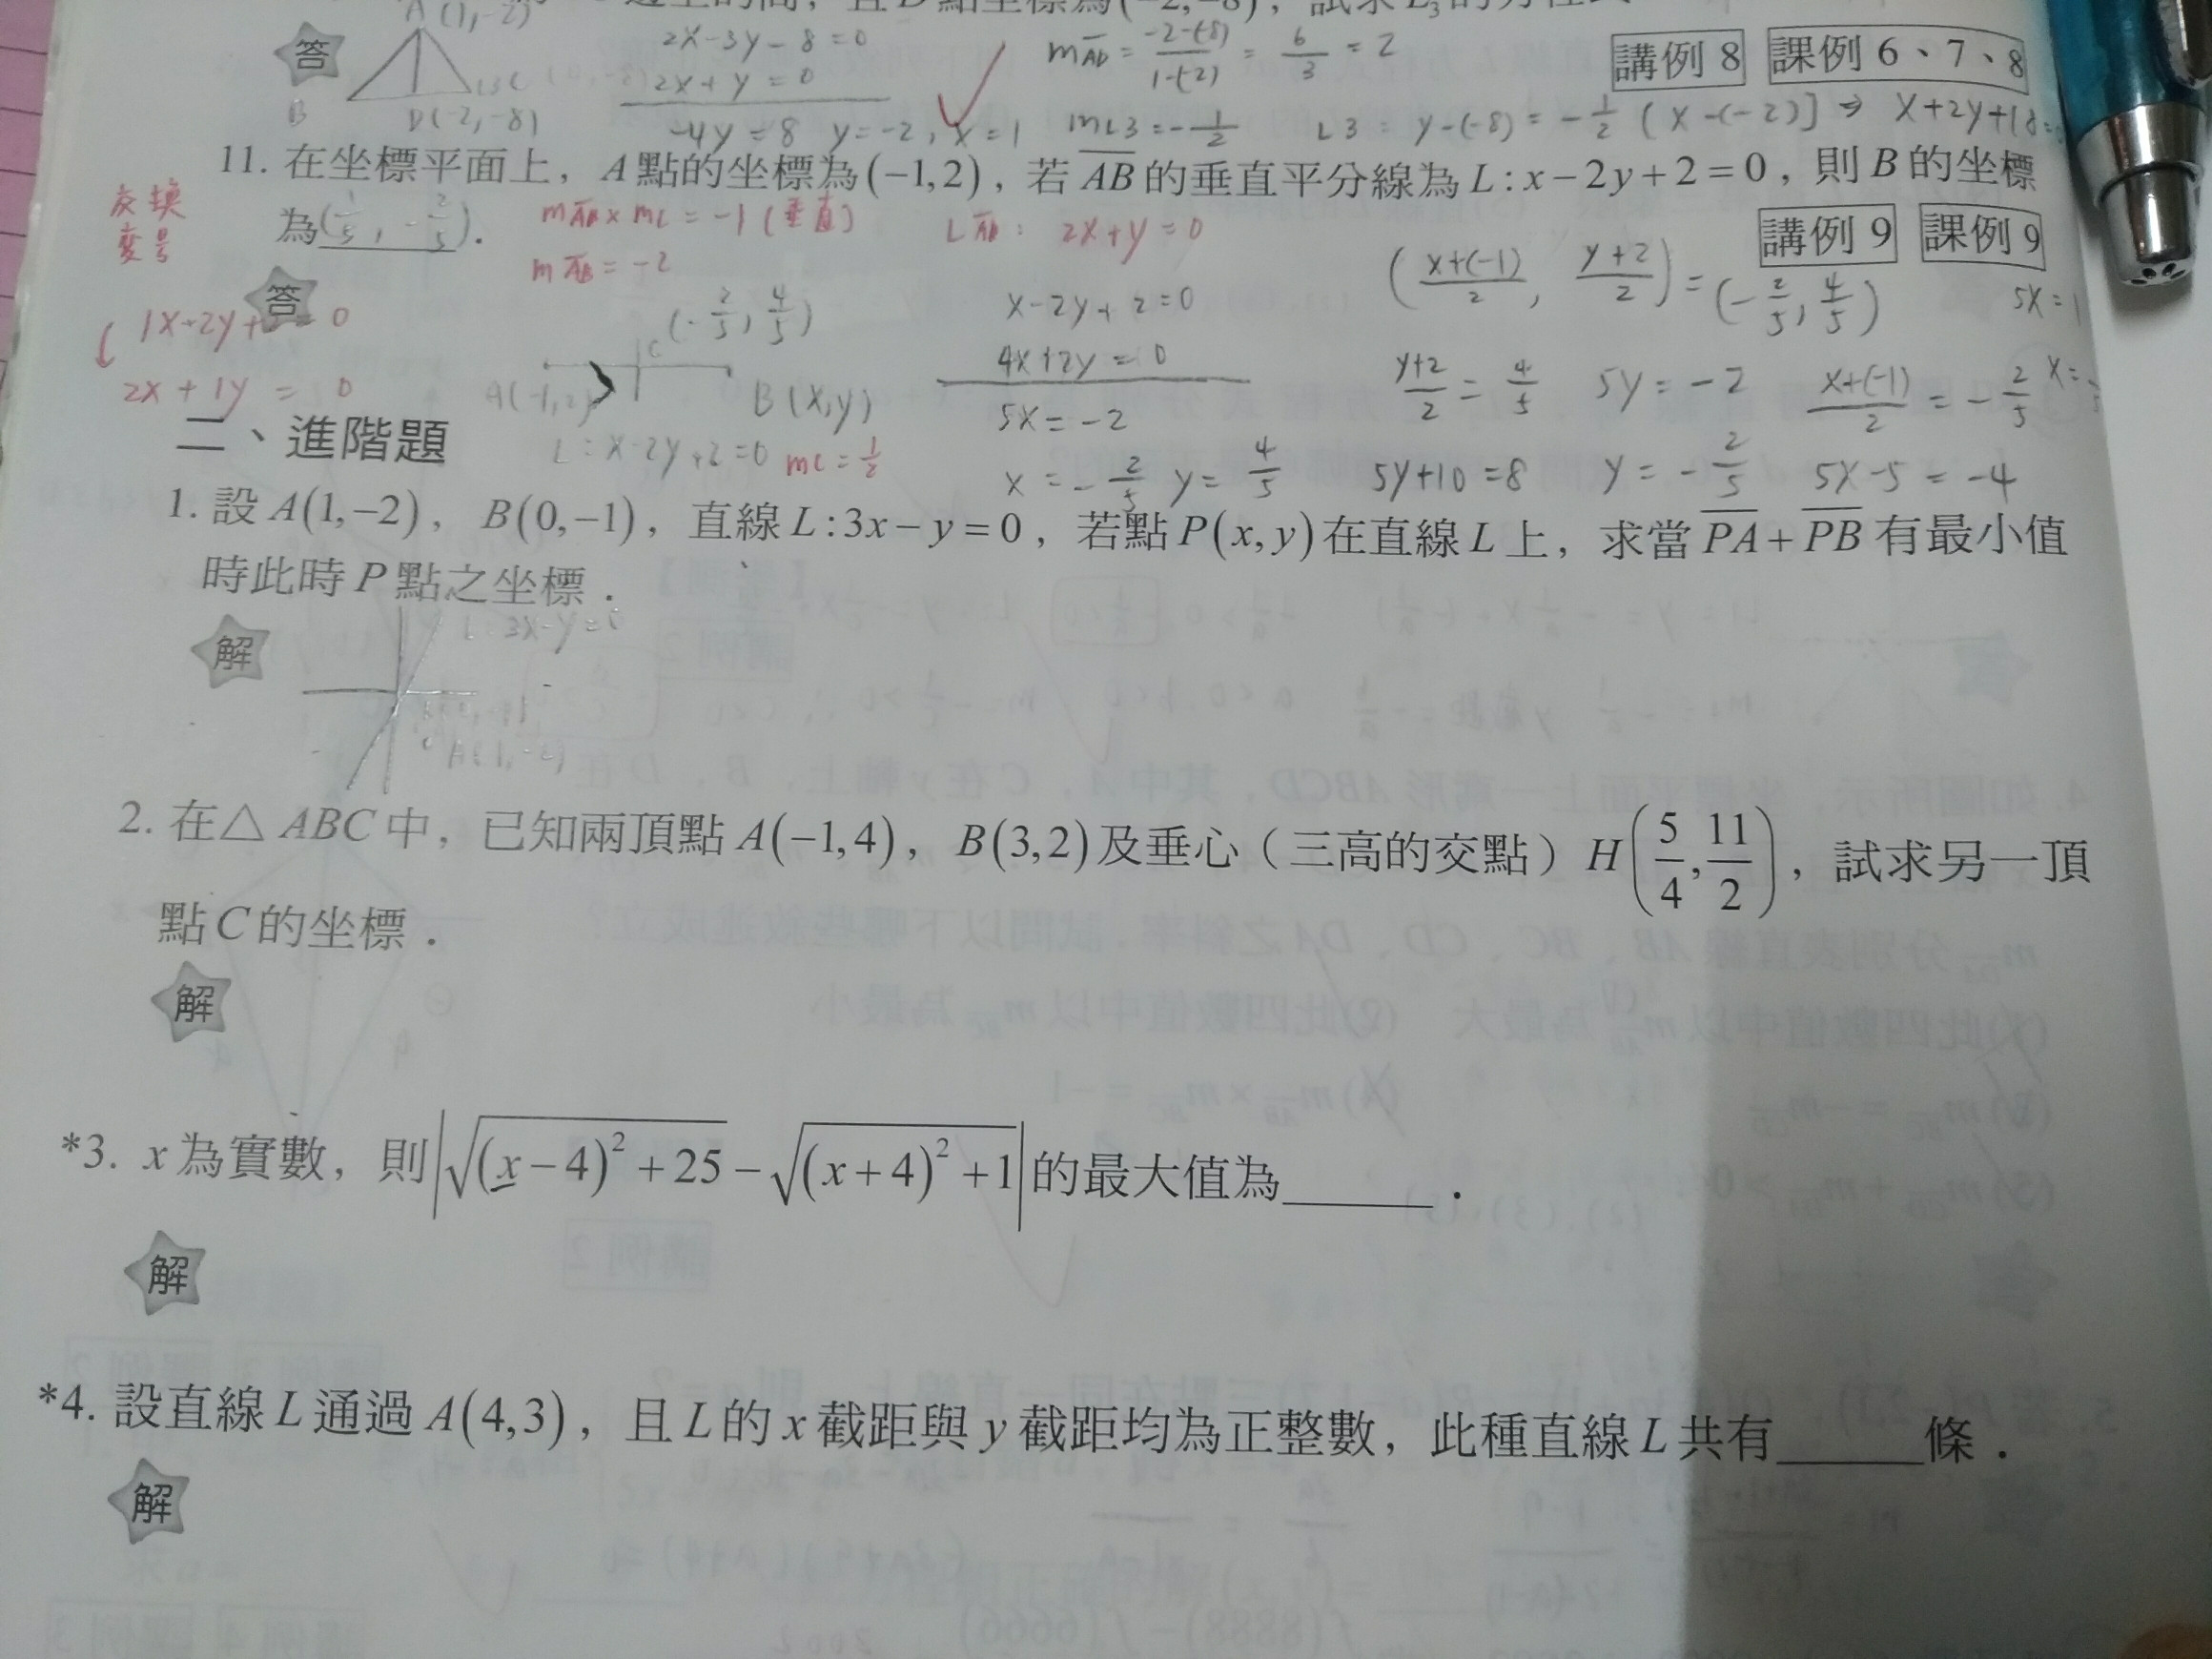 A(1,-2)
答
2x-3y-8=0
2x+y=0
-4y=8 y=-2, x=1
B
D(-2,-8)
mAD = -2-(-8)/1-(-2) = 6/3 = 2
mL3 = -1/2
L3: y-(-8) = -1/2 (x-(-2)] ⇒ x+2y+18=
講例 8 課例 6、7、8
11. 在坐標平面上，A點的坐標為(-1,2)，若AB的垂直平分線為L:x-2y+2=0，則B的坐標
為(1/5, -2/5).
講例 9 課例 9
答
交換
變號
2x+1y=0
mAB×mL=-1(垂直)
mAB=-2
LAB: 2x+y=0
(-2/5, 4/5)
C
A(-1,2)
B(x,y)
L:x-2y+2=0 mL=1/2
x-2y+2=0
4x+2y=0
5x=-2
x=-2/5 y=4/5
(x+(-1)/2, y+2/2)=(-2/5, 4/5)
y+2/2=4/5 5y=-2
5y+10=8 y=-2/5
x+(-1)/2=-2/5
5x-5=-4
5x=1
二、進階題
1. 設A(1,-2)，B(0,-1)，直線L:3x-y=0，若點P(x,y)在直線L上，求當PA+PB有最小值
時此時P點之坐標．
解
L:3x-y=0
A(1,-2)
2. 在△ABC中，已知兩頂點A(-1,4)，B(3,2)及垂心（三高的交點）H(5/4, 11/2)，試求另一頂
點C的坐標．
解
*3. x為實數，則|√((x-4)²+25)-√((x+4)²+1)|的最大值為______．
解
*4. 設直線L通過A(4,3)，且L的x截距與y截距均為正整數，此種直線L共有______條．
解